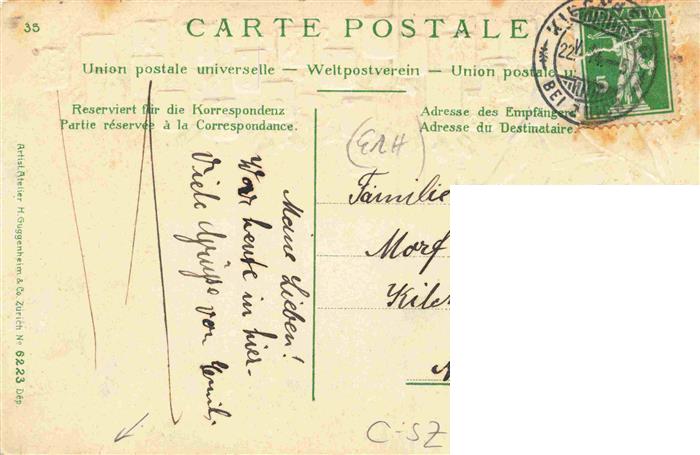 35
CARTE POSTALE
Union postale universelle – Weltpostverein – Union postale u
Reserviert für die Korrespondenz
Partie réservée à la Correspondance.
Adresse des Empfängers
Adresse du Destinataire.
HELVETIA
5
22.
BEI
(ERH)
Meine Lieben!
War heute in hier-
Viele Grüsse von Emil.
Familie
Morf
Kilch
C-SZ
Artist. Atelier H. Guggenheim & Co. Zürich No 6223 Dép.